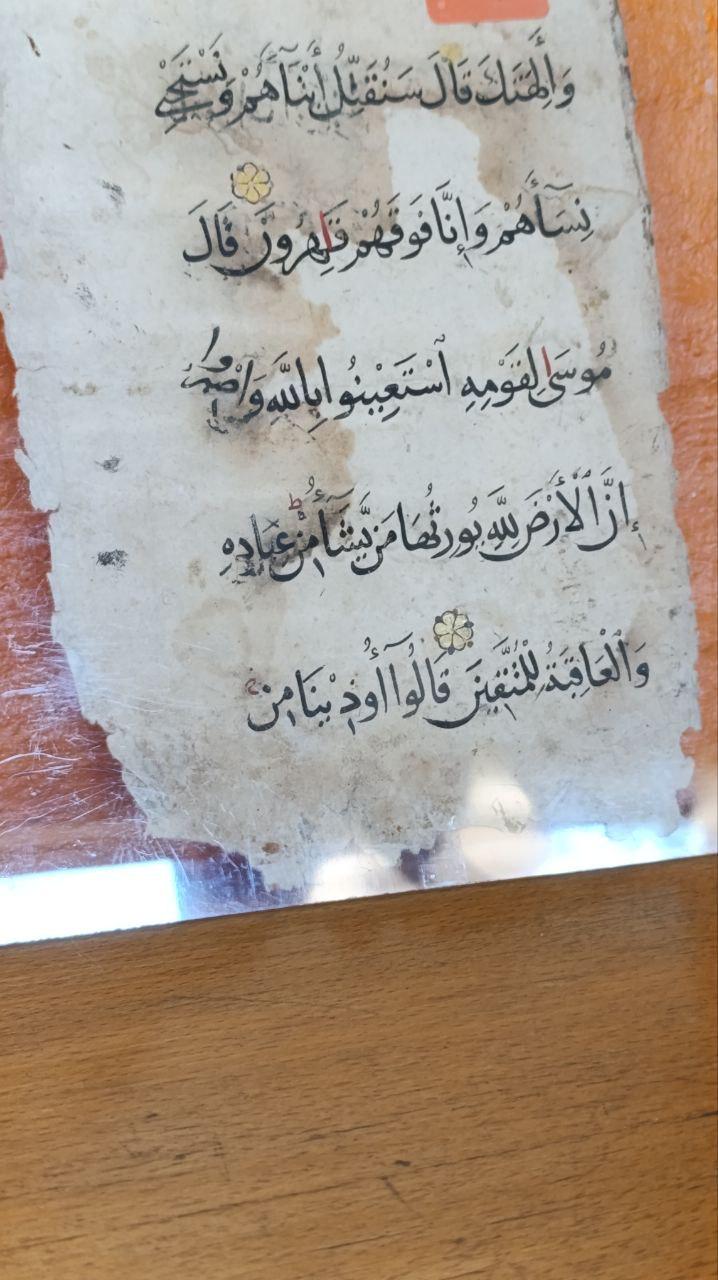 وَآلِهَتَكَ قَالَ سَنُقَتِّلُ أَبْنَآهُمْ وَنَسْتَحْيِ
نِسَآهُمْ وَإِنَّا فَوْقَهُمْ قَٰهِرُونَ قَالَ
مُوسَىٰ لِقَوْمِهِ اسْتَعِينُوا بِاللَّهِ وَاصْبِرُوا
إِنَّ الْأَرْضَ لِلَّهِ يُورِثُهَا مَن يَّشَآءُ مِنْ عِبَادِهِ
وَالْعَاقِبَةُ لِلْمُتَّقِينَ قَالُوٓا أُوذِينَا مِن